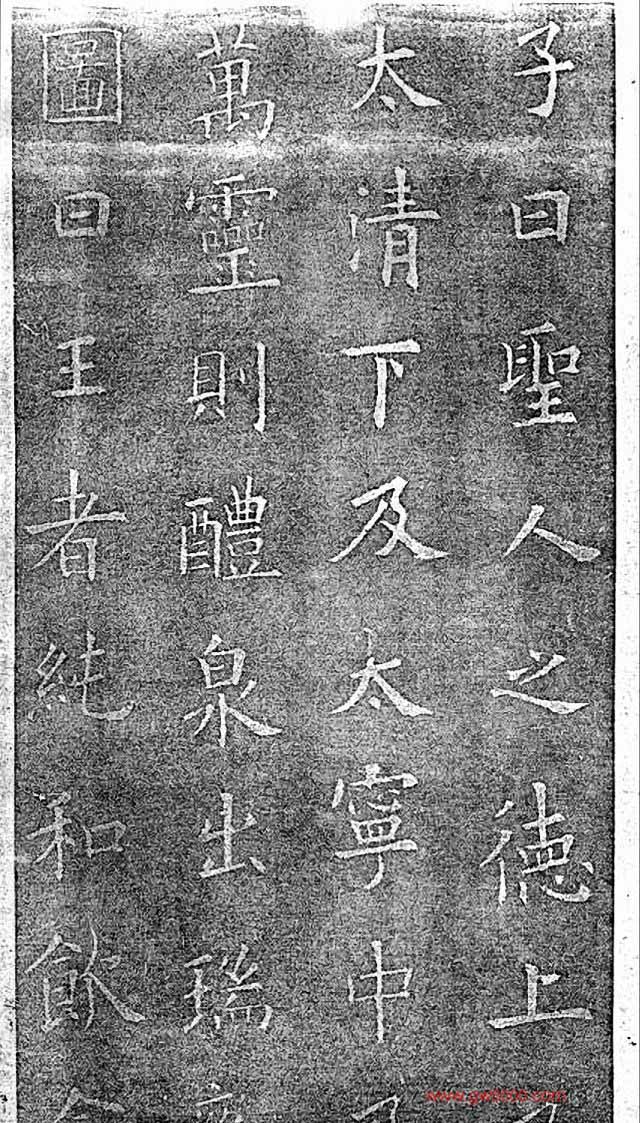 子曰聖人之德上
太清下及太寧中
萬靈則醴泉出瑞
圖曰王者純和飲